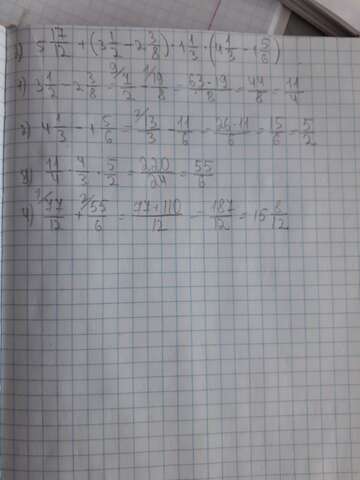 ) 5 17/12 + (3 1/2 - 2 3/8) · 1 1/3 · (4 1/3 - 1 5/6)
1) 3 1/2 - 2 3/8 = 7/2 - 19/8 = 63-19/8 = 44/8 = 11/4
2) 4 1/3 - 1 5/6 = 13/3 - 11/6 = 26-11/6 = 15/6 = 5/2
3) 11/4 · 4/3 · 5/2 = 220/24 = 55/6
4) 77/12 + 55/6 = 77+110/12 = 187/12 = 15 /12